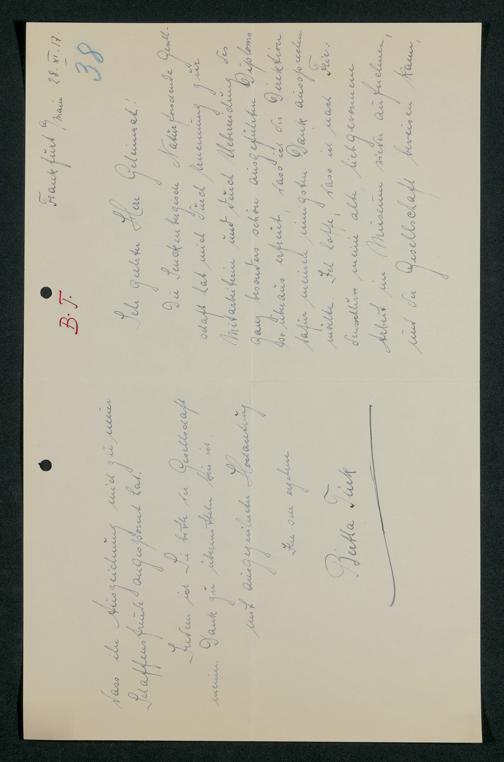 38
Frankfurt a/Main 28. VI. 17.
B. T.
Sehr geehrter Herr Geheimrat!
Die Senckenbergische Naturforschende Gesell-
schaft hat mich durch Ernennung zur
Mitarbeiterin und durch Übersendung des
ganz besonders schön ausgeführten Diploms
so überaus erfreut, dass ich der Direktion
dafür meinen innigsten Dank aussprechen
möchte. Ich hoffe, dass ich nach
meine alte liebgewonnene
Arbeit im Museum wieder aufnehmen,
und der Gesellschaft beweisen kann,
dass ihre Auszeichnung mich zu neuer
Schaffensfreude angespornt hat.
Indem ich Sie bitte der Gesellschaft
meinen Dank zu übermitteln bin ich
mit ausgezeichneter Hochachtung
Ihre sehr ergebene
Bertha Türk